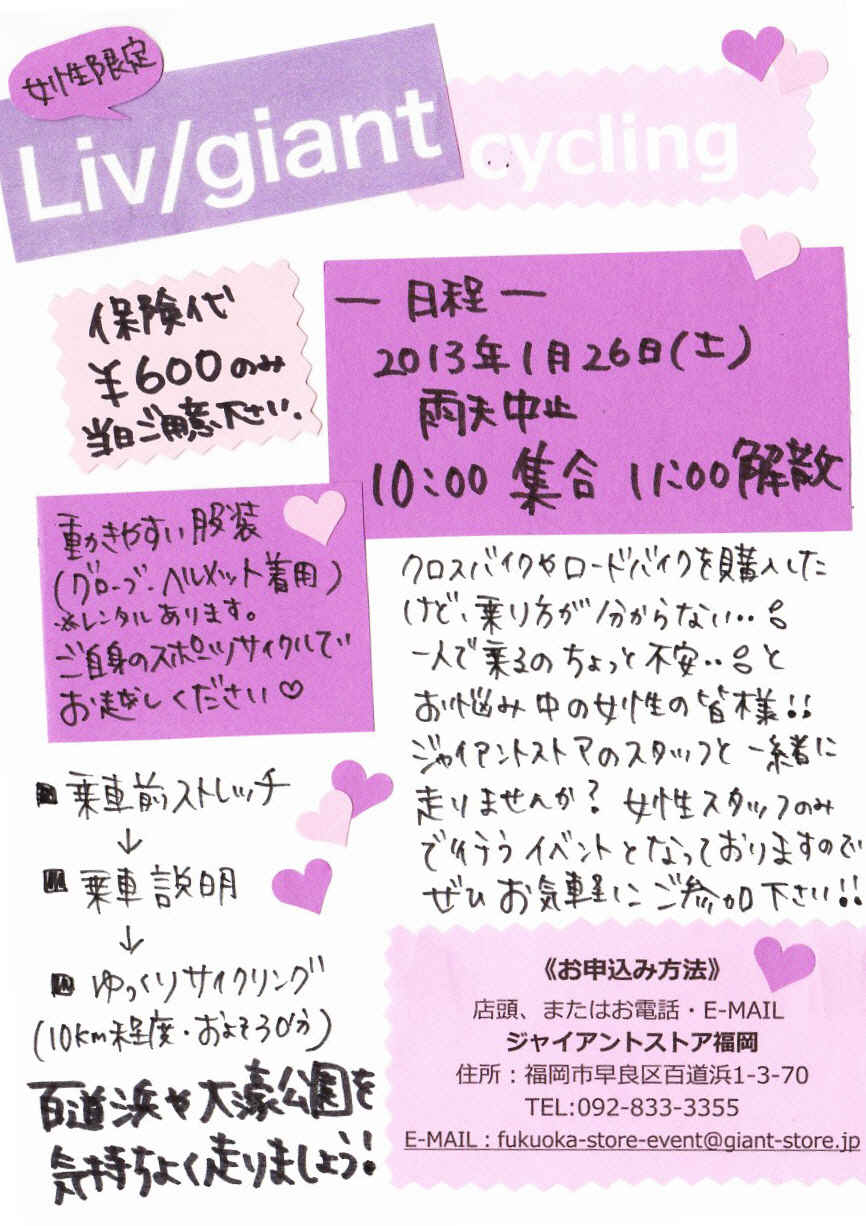 女性限定
Liv/giant cycling
保険代
¥600のみ
当日ご用意下さい.
— 日程 —
2013年1月26日(土)
雨天中止
10:00 集合 11:00解散
動きやすい服装
(グローブ・ヘルメット着用)
※レンタルあります。
ご自身のスポーツサイクルで
お越しください♡
クロスバイクやロードバイクを購入した
けど、乗り方が分からない・・。
一人で乗るのちょっと不安・・。と
お悩み中の女性の皆様!!
ジャイアントストアのスタッフと一緒に
走りませんか? 女性スタッフのみ
で行うイベントとなっておりますので
ぜひお気軽にご参加下さい!!
■ 乗車前ストレッチ
↓
■ 乗車説明
↓
■ ゆっくりサイクリング
(10km程度・およそ30分)
百道浜や大濠公園を
気持ちよく走りましょう!
《お申込み方法》
店頭、またはお電話・E-MAIL
ジャイアントストア福岡
住所：福岡市早良区百道浜1-3-70
TEL:092-833-3355
E-MAIL：fukuoka-store-event@giant-store.jp